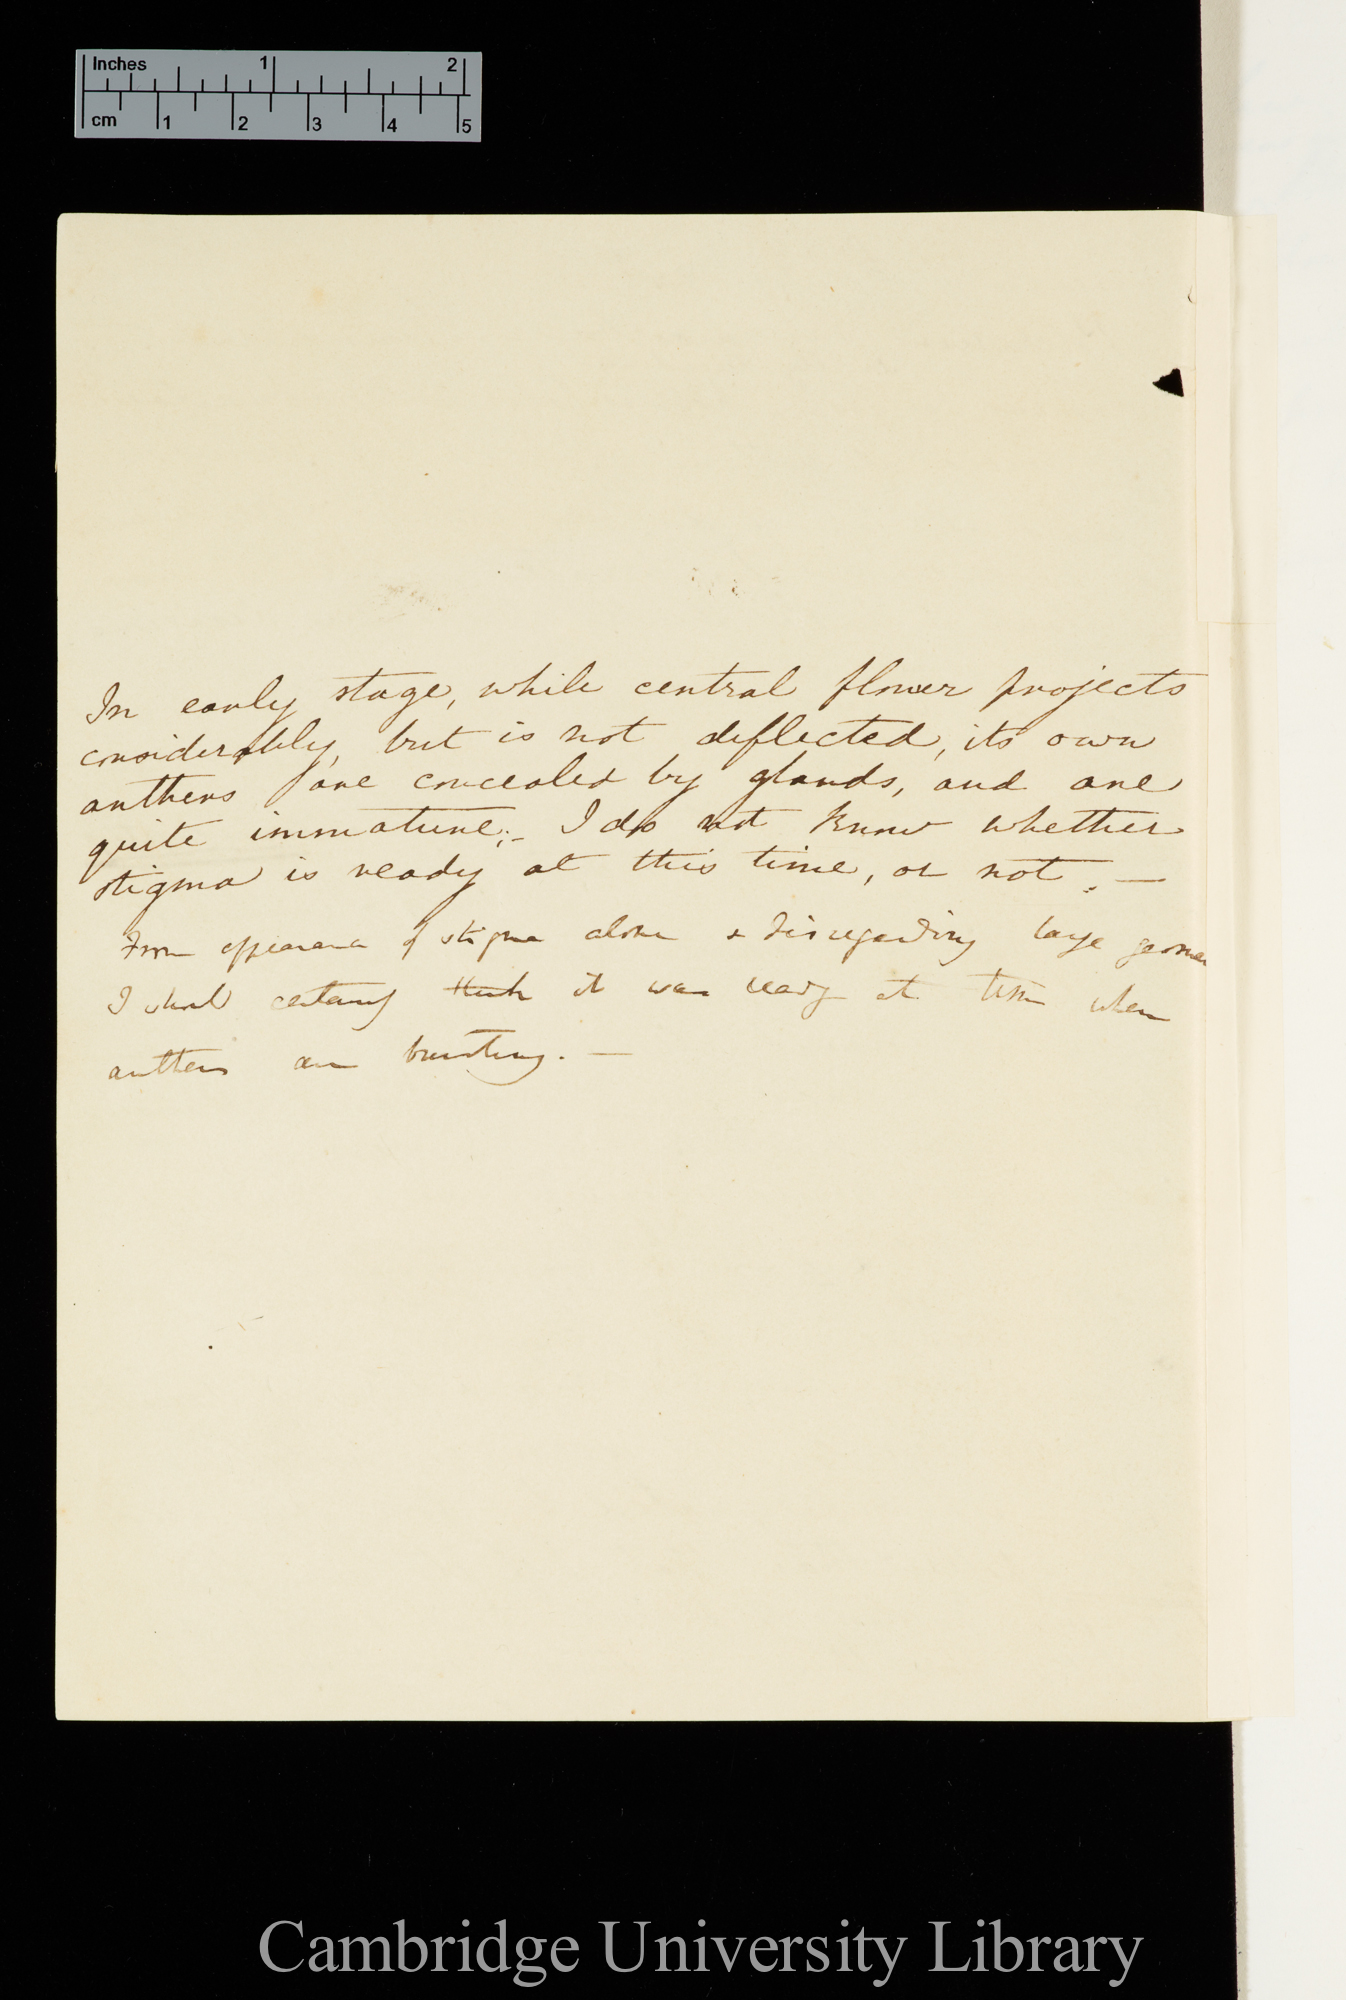 Inches 1 2
cm 1 2 3 4 5
In early stage, while central flower projects
considerably, but is not deflected, its own
anthers are concealed by glands, and are
quite immature;– I do not know whether
stigma is ready at this time, or not. —
From appearance of stigma alone & disregarding large
I shd certainly think it was ready at time when
anthers are bursting. —
Cambridge University Library